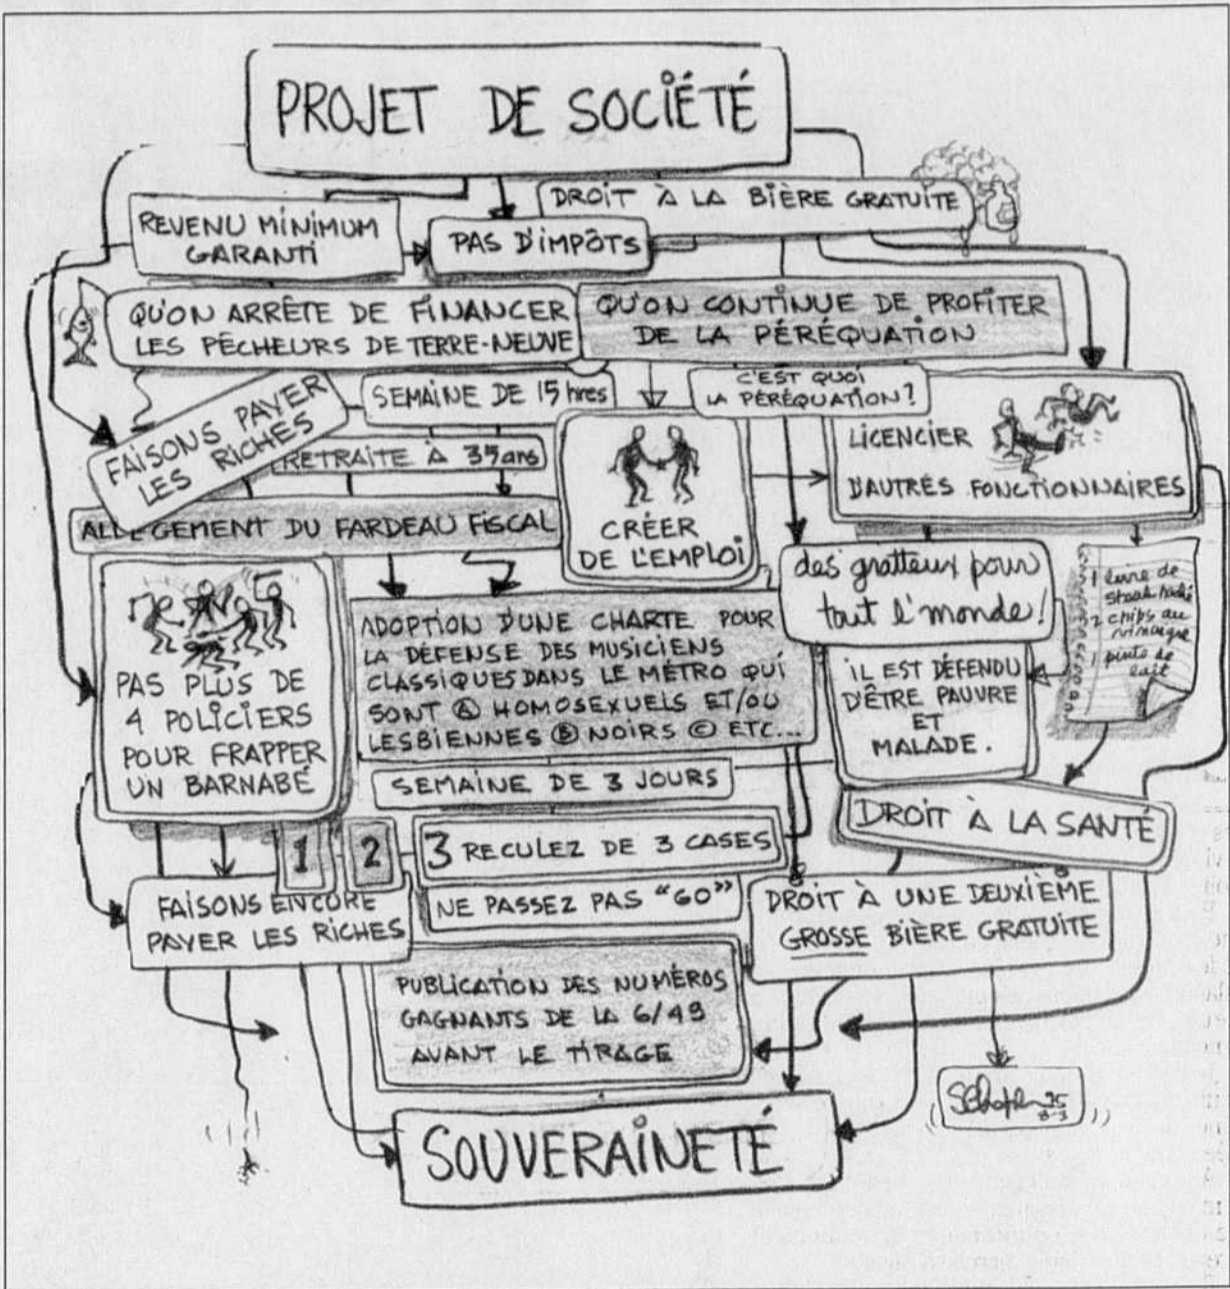 PROJET DE SOCIÉTÉ
DROIT À LA BIÈRE GRATUITE
REVENU MINIMUM
GARANTI
PAS D'IMPÔTS
QU'ON ARRÊTE DE FINANCER
LES PÊCHEURS DE TERRE-NEUVE
QU'ON CONTINUE DE PROFITER
DE LA PÉRÉQUATION
FAISONS PAYER
LES RICHES
SEMAINE DE 15 hres
C'EST QUOI
LA PÉRÉQUATION?
RETRAITE À 35 ans
LICENCIER
D'AUTRES FONCTIONNAIRES
ALLÈGEMENT DU FARDEAU FISCAL
CRÉER
DE L'EMPLOI
des gratteux pour
tout l'monde!
1 livre de
steak haché
2 chips au
vinaigre
1 pinte de
lait
PAS PLUS DE
4 POLICIERS
POUR FRAPPER
UN BARNABÉ
ADOPTION D'UNE CHARTE POUR
LA DÉFENSE DES MUSICIENS
CLASSIQUES DANS LE MÉTRO QUI
SONT Ⓐ HOMOSEXUELS ET/OU
LESBIENNES Ⓑ NOIRS Ⓒ ETC...
IL EST DÉFENDU
D'ÊTRE PAUVRE
ET
MALADE.
SEMAINE DE 3 JOURS
DROIT À LA SANTÉ
1
2
3 RECULEZ DE 3 CASES
NE PASSEZ PAS "GO"
FAISONS ENCORE
PAYER LES RICHES
DROIT À UNE DEUXIÈME
GROSSE BIÈRE GRATUITE
PUBLICATION DES NUMÉROS
GAGNANTS DE LA 6/49
AVANT LE TIRAGE
95
SOUVERAINETÉ